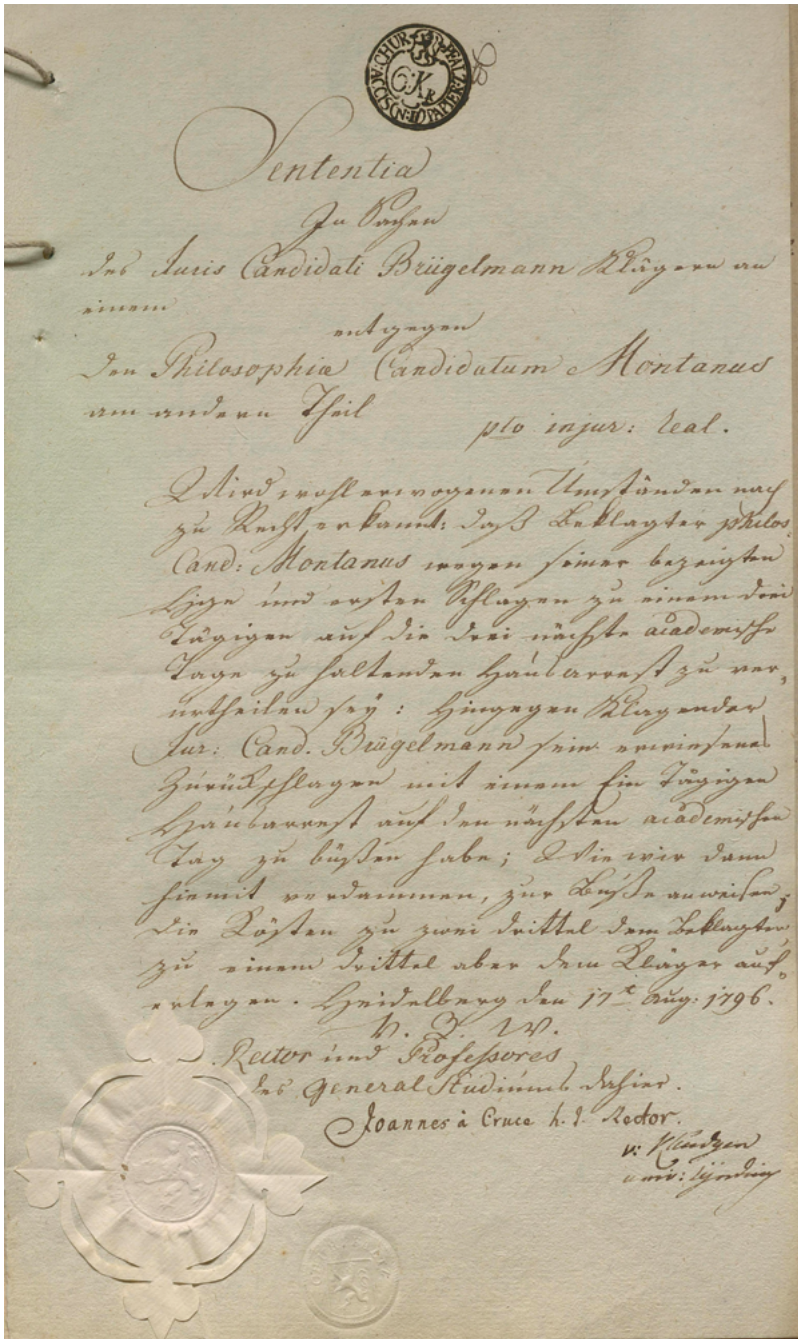 CHUR PFALZ
6 K R
PAPIER
Sententia
In Sachen
des Juris Candidati Brügelmann Klägern an
einem
entgegen
den Philosophiæ Candidatum Montanus
am andern Theil
pto injur: real.
Wird wohl erwogenen Umständen nach
zu Recht erkannt: daß Beklagter philos.
Cand: Montanus wegen seiner bezeigten
Hize und ersten Schlagen zu einem drei
Tägigen auf die drei nächste academische
Tage zu haltenden Hausarrest zu ver„
urtheilen sey: Hingegen Klagender
Jur: Cand. Brügelmann sein erwiesenes
Zurückschlagen mit einem Ein Tägigen
Hausarrest auf den nächsten academischen
Tag zu büßen habe; Wie wir dann
hiemit verdammen, zur Buße anweisen;
die Kösten zu zwei drittel dem Beklagten
zu einem drittel aber dem Kläger auf„
erlegen. Heidelberg den 17t Aug: 1796.
V. R. W.
Rector und Professores
des General Studiums dahier.
Joannes à Cruce h. t. Rector.